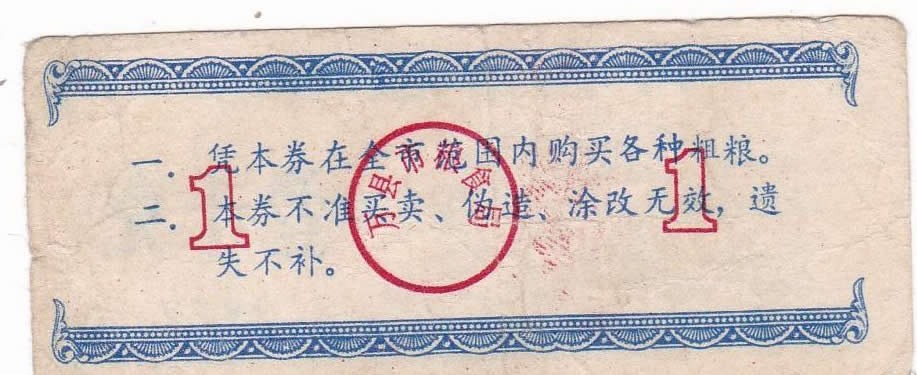 一. 凭本券在全市范围内购买各种粗粮。
二. 本券不准买卖、伪造、涂改无效，遗
失不补。
万县市粮食局
1
1